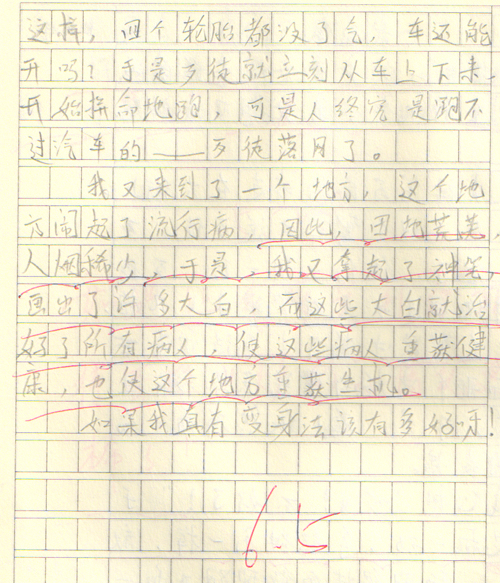 这样，四个轮胎都没了气，车还能
开吗？于是歹徒就立刻从车上下来，
开始拼命地跑，可是人终究是跑不
过汽车的——歹徒落网了。
我又来到了一个地方，这个地
方闹起了流行病，因此，田地荒芜，
人烟稀少，于是，我又拿起了神笔，
画出了许多大白，而这些大白就治
好了所有病人，使这些病人重获健
康，也使这个地方重获生机。
如果我真有变身法该有多好呀！
6.5